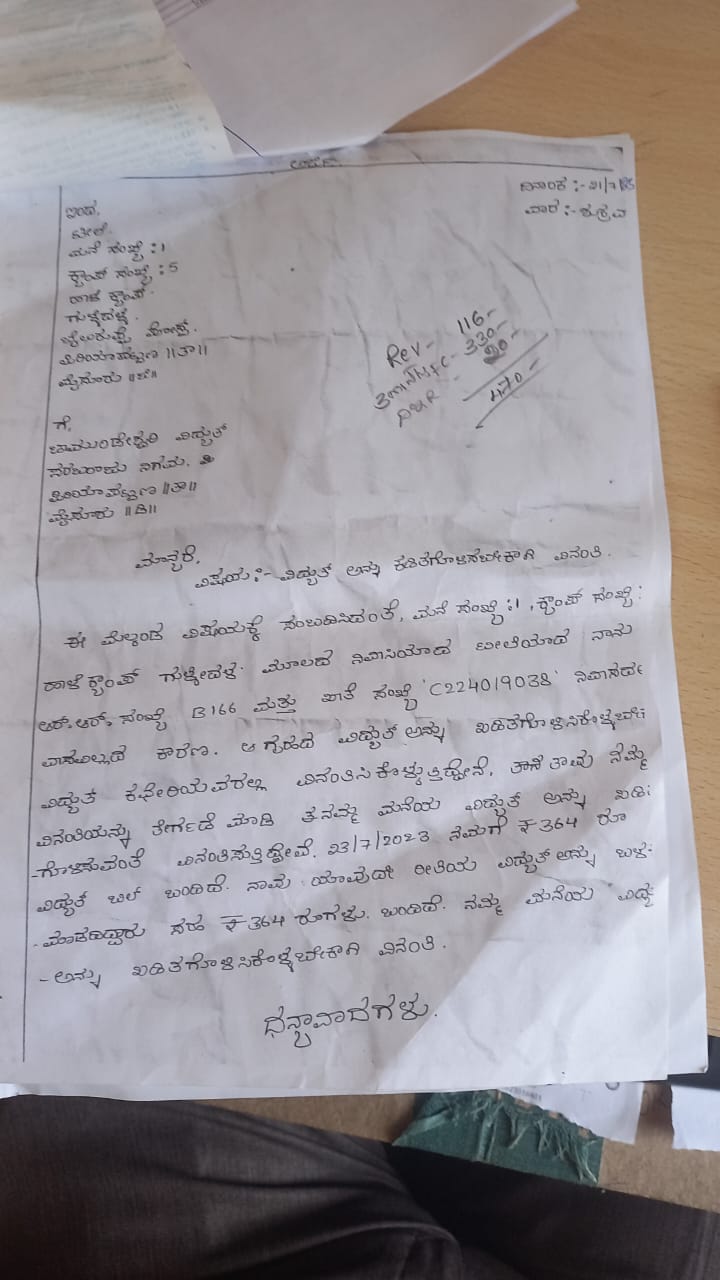 ದಿನಾಂಕ :- 21/7/
ವಾರ :- ಶುಕ್ರವ
ಇಂದ,
ಮನೆ ಸಂಖ್ಯೆ : 1
ಕ್ಯಾಂಪ್ ಸಂಖ್ಯೆ : 5
ಹಳೆ ಕ್ಯಾಂಪ್.
ಗುಳ್ಳೆದಳ್ಳ.
ಬೈಲುಕುಪ್ಪೆ ಪೋಸ್ಟ್.
ಪಿರಿಯಾಪಟ್ಟಣ ||ತಾ||
ಮೈಸೂರು ||ಜಿ||
Rev- 116-
330-
470-
ಗೆ,
ಚಾಮುಂಡೇಶ್ವರಿ ವಿದ್ಯುತ್
ಸರಬರಾಜು ನಿಗಮ.
ಪಿರಿಯಾಪಟ್ಟಣ ||ತಾ||
ಮೈಸೂರು ||ಜಿ||
ಮಾನ್ಯರೆ,
ವಿಷಯ :- ವಿದ್ಯುತ್ ಅನ್ನು ಕಡಿತಗೊಳಿಸಬೇಕಾಗಿ ವಿನಂತಿ.
ಈ ಮೆಲ್ಕಂಡ ವಿಷಯಕ್ಕೆ ಸಂಬಂಧಿಸಿದಂತೆ, ಮನೆ ಸಂಖ್ಯೆ : 1, ಕ್ಯಾಂಪ್ ಸಂಖ್ಯೆ :
ಹಳೆ ಕ್ಯಾಂಪ್ ಮೂಲದ ನಿವಾಸಿಯಾದ ನಾನು
ಆರ್.ಆರ್. ಸಂಖ್ಯೆ B166 ಮತ್ತು ಖಾತೆ ಸಂಖ್ಯೆ 'C224019038'
ಕಾರಣ. ಆ ಗೃಹದ ವಿದ್ಯುತ್ ಅನ್ನು ಖಡಿತಗೊಳಿಸಿಕೊಳ್ಳಬೇ
ವಿದ್ಯುತ್ ಕಛೇರಿಯವರಲ್ಲಿ ವಿನಂತಿಸಿಕೊಳ್ಳುತ್ತಿದ್ದೇನೆ, ತಾವು ನಮ್ಮ
ವಿನಂತಿಯನ್ನು ಮಾಡಿ ನಮ್ಮ ಮನೆಯ ವಿದ್ಯುತ್ ಅನ್ನು ಖಡಿ
-ಗೊಳಿಸುವಂತೆ ವಿನಂತಿಸುತ್ತಿದ್ದೇವೆ. 23/7/2023 ನಮಗೆ ₹ 364 ರೂ
ವಿದ್ಯುತ್ ಬಿಲ್ ಬಂದಿದೆ. ನಾವು ಯಾವುದೇ ರೀತಿಯ ವಿದ್ಯುತ್ ಅನ್ನು ಬಳ
ಸಹ ₹ 364 ರೂಗಳು. ಬಂದಿದೆ. ನಮ್ಮ ಮನೆಯ ವಿದ್ಯು
- ಅನ್ನು ಖಡಿತಗೊಳಿಸಿಕೊಳ್ಳಬೇಕಾಗಿ ವಿನಂತಿ.
ಧನ್ಯಾವಾದಗಳು.